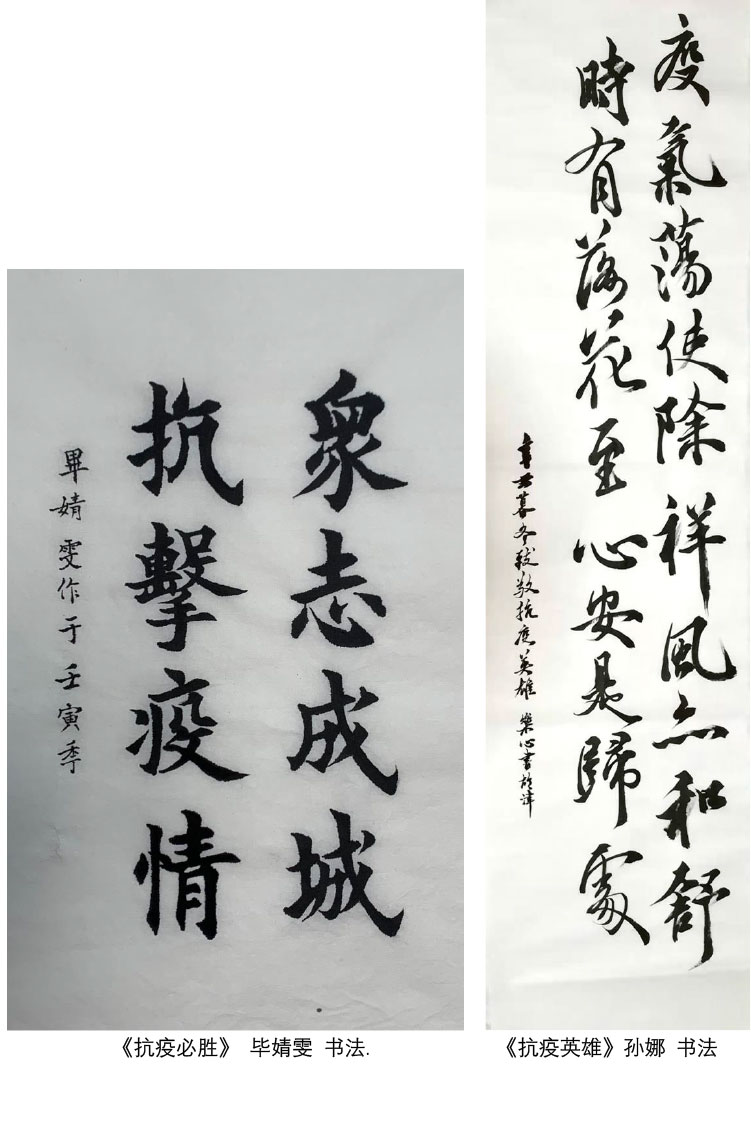 衆志成城
抗擊疫情
畢婧雯作于壬寅秊
疫氣蕩使除祥風亦和舒
時有落花至心安是歸處
辛丑暮冬致敬抗疫英雄 樂心書於津
《抗疫必胜》 毕婧雯 书法.
《抗疫英雄》孙娜 书法